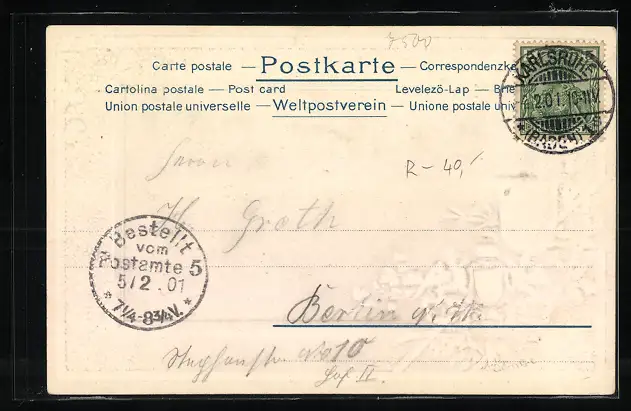 7.500
Carte postale — Postkarte — Correspondenzka
Cartolina postale — Post card Levelező-Lap — Brie
Union postale universelle — Weltpostverein — Unione postale univ
KARLSRUHE
2.01.
(BADEN)
R-40,-
Herrn
H. Groth
Bestellt
vom
Postamte 5
5/2.01
* 7¼-8¾V. *
Berlin
10
Hof II.